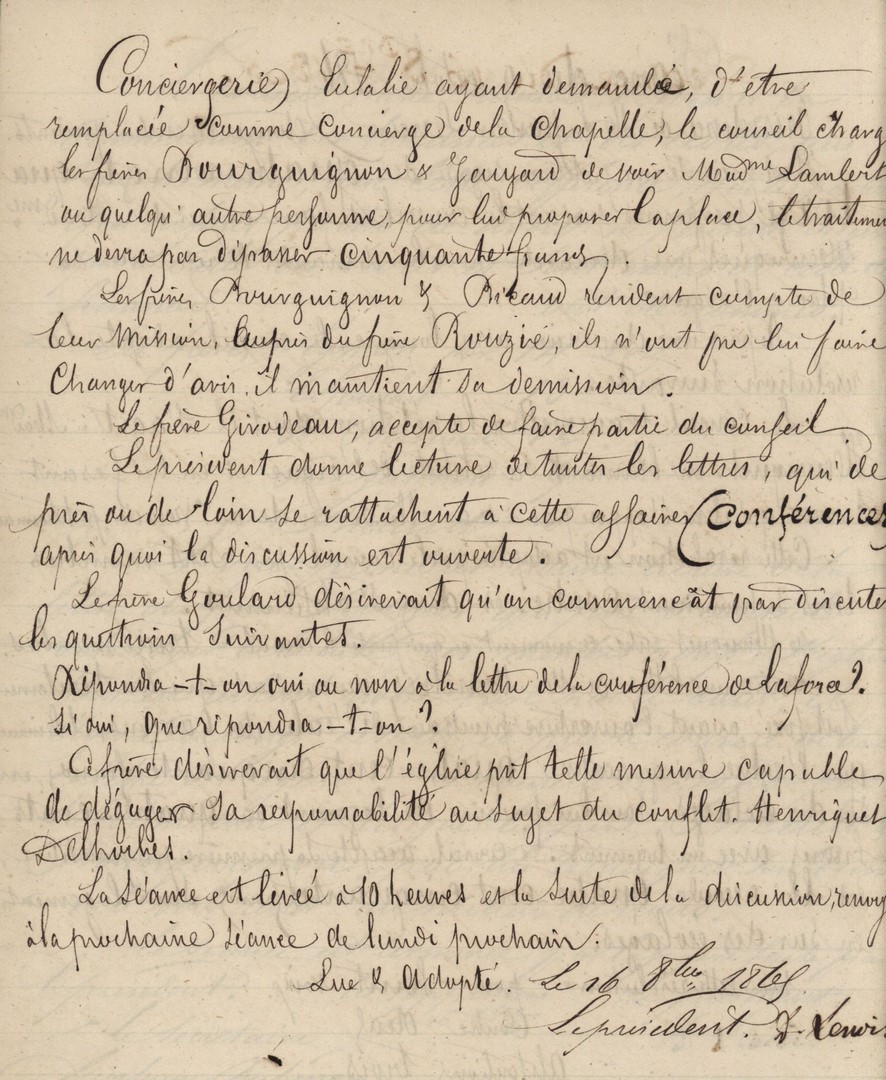 Conciergerie) Eulalie ayant demandée, d'être
remplacée comme concierge de la chapelle, le conseil charg
les frères Bourguignon & Gaujard de voir Madme Lambert
ou quelqu'autre personne, pour lui proposer la place, le traitemen
ne devra pas dépasser cinquante francs.
Les frères Bourguignon & Ricaud rendent compte de
leur mission, auprès du frère Rouzivé, ils n'ont pu lui faire
changer d'avis, il maintient sa demission.
Le frère Girodeau, accepte de faire partie du conseil.
Le président donne lecture de toutes les lettres, qui de
près ou de loin se rattachent à cette affaire (Conférences
après quoi la discussion est ouverte.
Le frère Goulard désirerait qu'on commençât par discuter
les questions suivantes.
Répondra-t-on oui ou non à la lettre de la conférence de Laforce?.
Si oui, que répondra-t-on?.
Ce frère désirerait que l'église prit telle mesure capable
de dégager sa responsabilité au sujet du conflit. Henriquet
La séance est levée à 10 heures et la suite de la discussion, renvoy
à la prochaine séance de lundi prochain.
Lue & Adopté. Le 16 8bre 1865
Le président. Lenoir